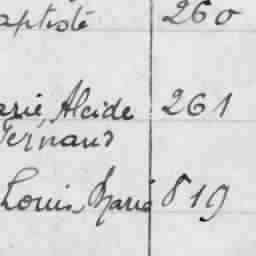 aptiste 260
arie, Alcide 261
Fernand
Louis Marie 819